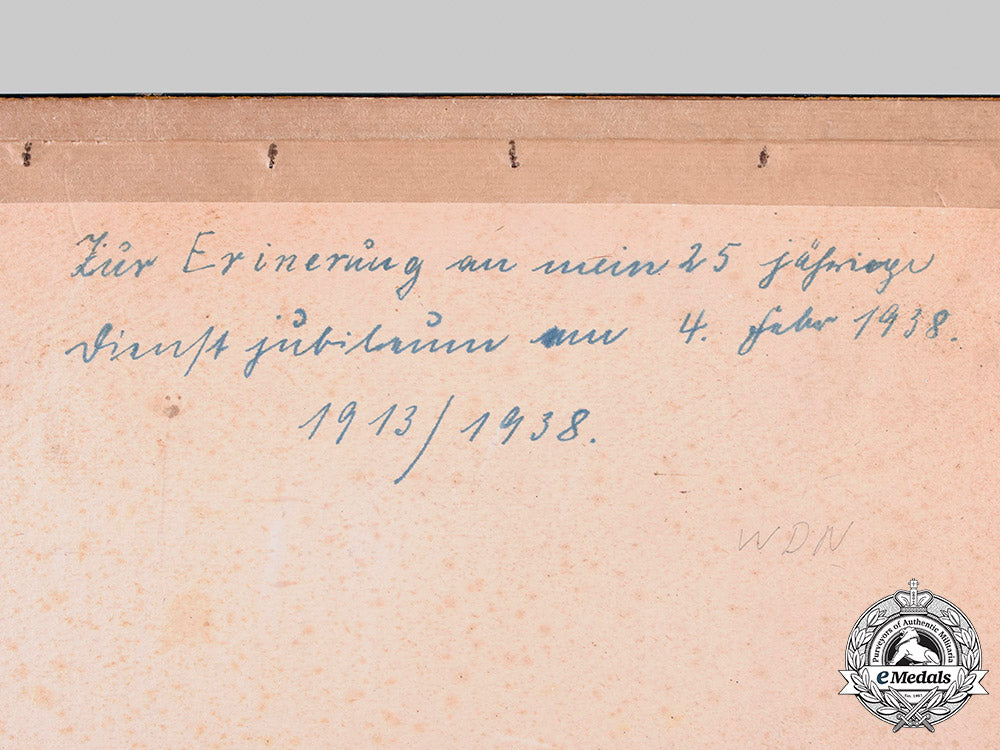 Zur Erinerung an mein 25 jährige
Dienst jubileum am 4. Febr 1938.
1913/1938.
WDN
Purveyors of Authentic Militaria
eMedals